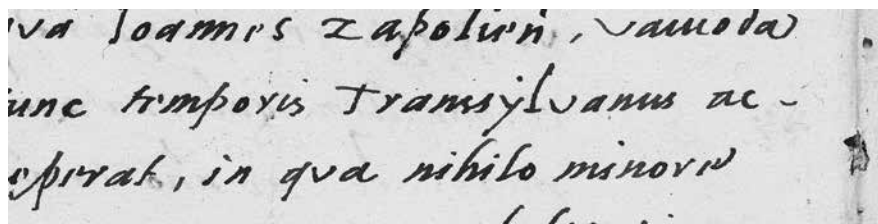 qua Ioannes Zapolien, vaiuoda
tunc temporis Transsylvanus ac-
ceperat, in qua nihilo minore